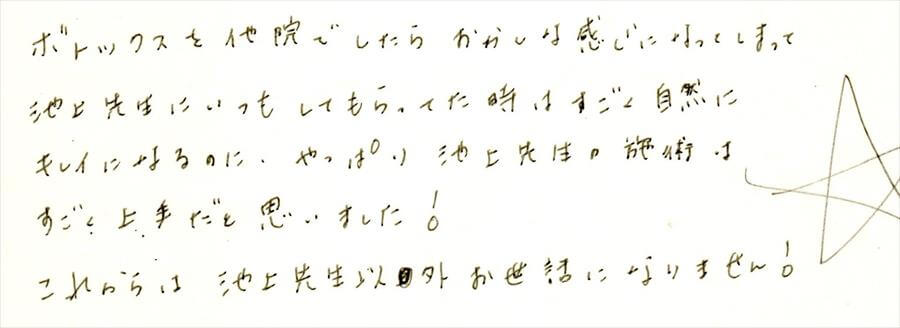 ボトックスを他院でしたら おかしな感じになってしまって
池上先生にいつもしてもらってた時はすごく自然に
キレイになるのに、やっぱり 池上先生の施術は
すごく上手だと思いました!
これからは 池上先生以外お世話になりません!